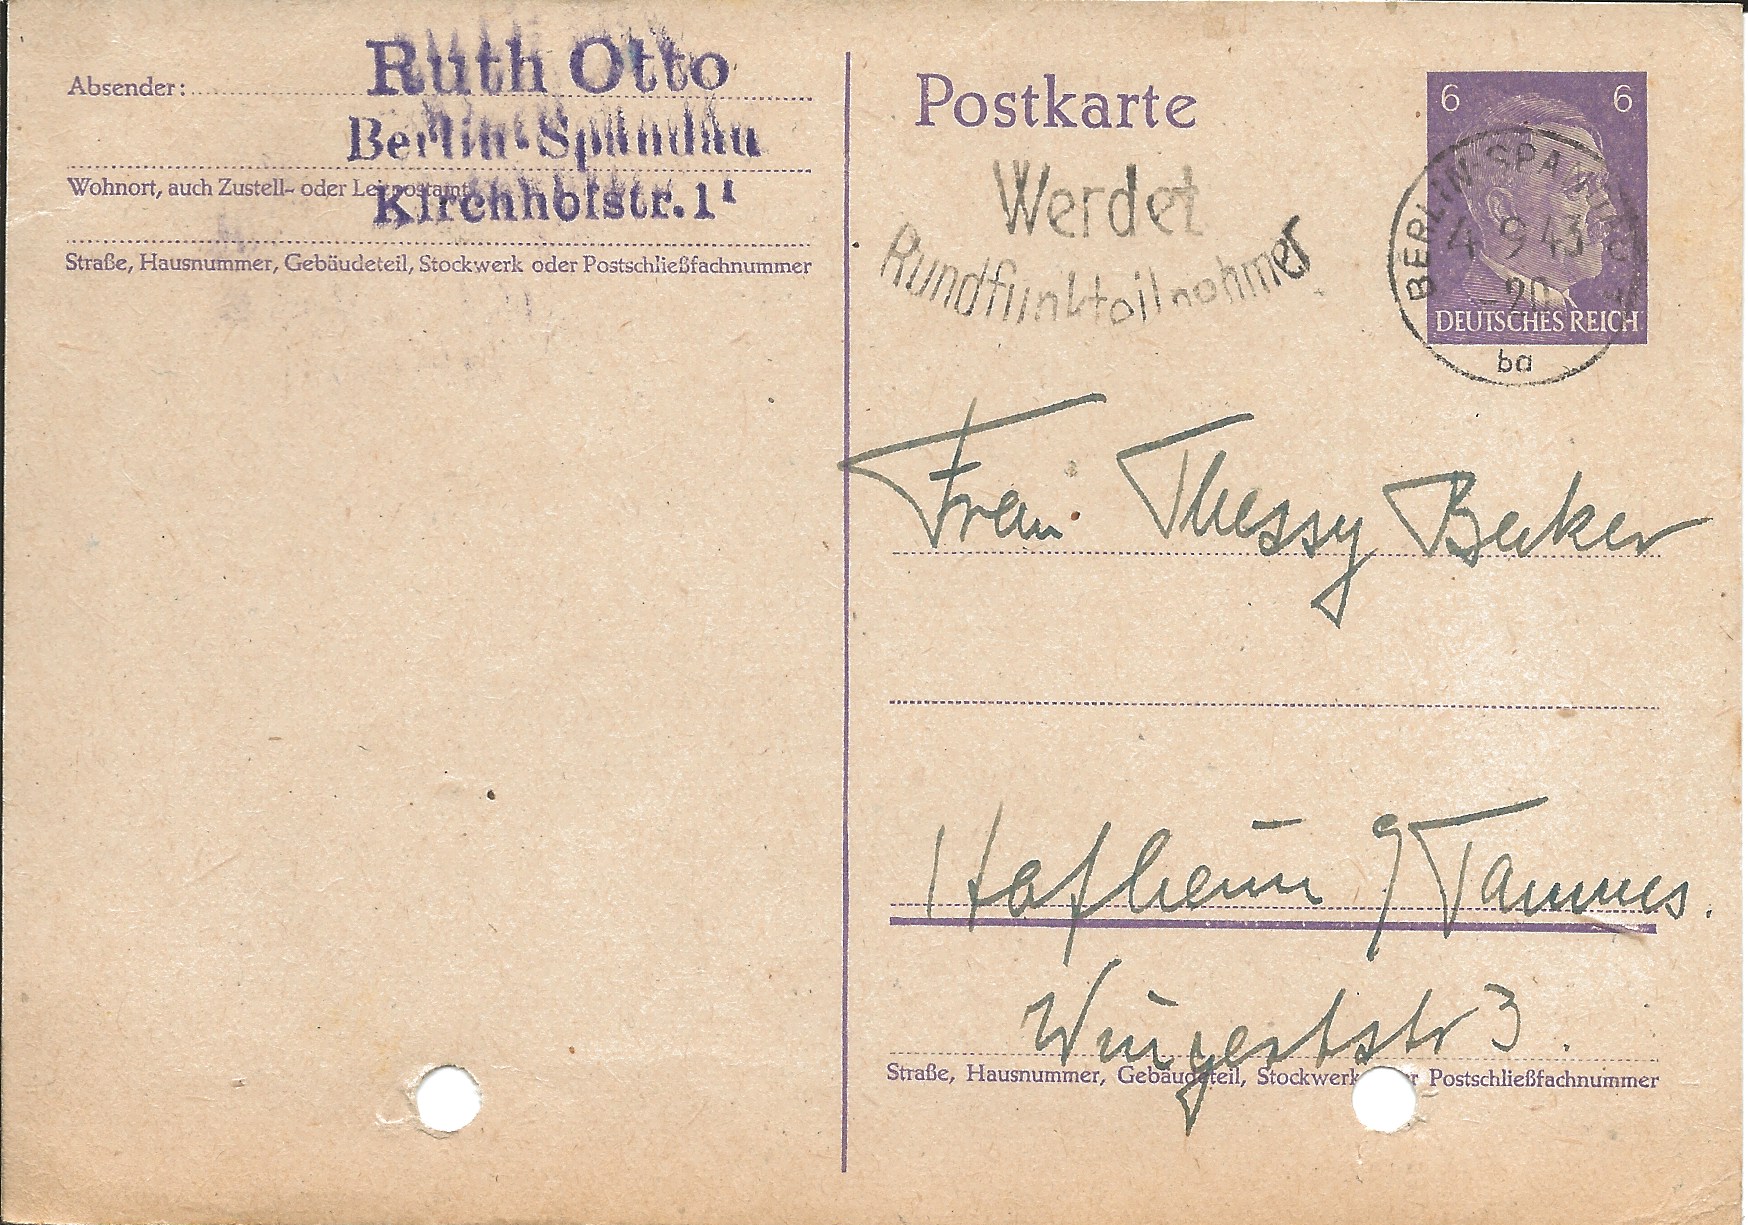 Absender:
Ruth Otto
Berlin-Spandau
Wohnort, auch Zustell- oder Leitpostamt
Kirchhofstr. 1¹
Straße, Hausnummer, Gebäudeteil, Stockwerk oder Postschließfachnummer
Postkarte
6 6
DEUTSCHES REICH
BERLIN-SPANDAU
4.9.43
-20
ba
Werdet
Rundfunkteilnehmer
Frau Thessy Becker
Hofheim / Taunus.
Wingertstr 3.
Straße, Hausnummer, Gebäudeteil, Stockwerk oder Postschließfachnummer